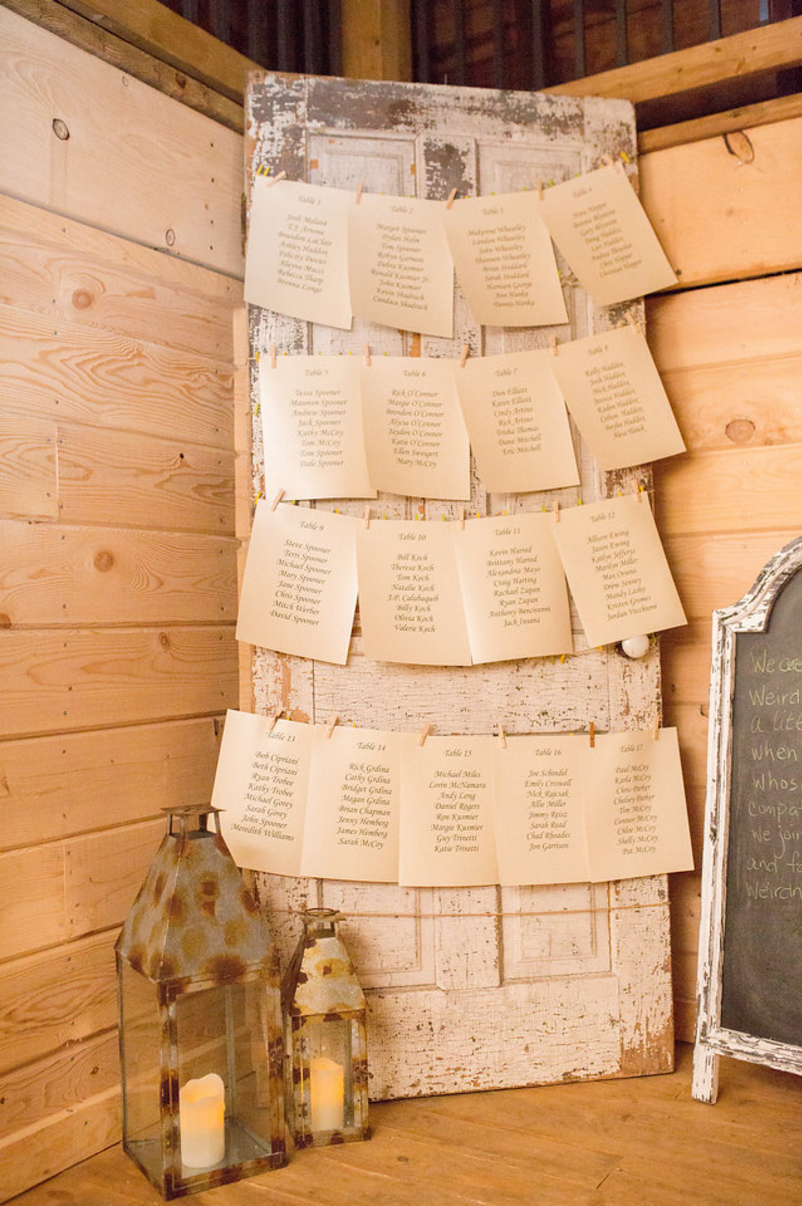 Table 1
Josh Malusa
T.J. Arnone
Brandon LaClair
Ashley Hadden
Felicity Devies
Alayna Mucci
Rebecca Tharp
Brenna Longo
Table 2
Margot Spooner
Dylan Helm
Tom Spooner
Robyn Garson
Debra Kusmier
Ronald Kusmier Jr.
John Kusmier
Kevin Shadrack
Candace Shadrach
Table 3
Makenna Wheatley
Landon Wheatley
John Wheatley
Shannon Wheatley
Brian Stoddard
Sarah Stoddard
Harrison George
Ann Hanko
Dennis Hanko
Table 4
Hopper
Hopper
Christian Hopper
Table 5
Tessa Spooner
Maureen Spooner
Andrew Spooner
Jack Spooner
Kathy McCoy
Tom McCoy
Tom Spooner
Dale Spooner
Table 6
Rick O'Connor
Margie O'Connor
Brendon O'Connor
Alycia O'Connor
Jaydon O'Connor
Kara O'Connor
Ellen Sweigert
Mary McCoy
Table 7
Don Elliott
Karen Elliott
Cindy Artino
Rick Artino
Trisha Thomas
Dana Mitchell
Eric Mitchell
Table 8
Kelly Hadden,
Josh Hadden,
Nick Hadden,
Jessica Hadden,
Kaden Hadden,
Colton Hadden,
Jordan Hadden,
Table 9
Steve Spooner
Terri Spooner
Michael Spooner
Mary Spooner
Jane Spooner
Chris Spooner
Mitch Werber
David Spooner
Table 10
Bill Koch
Theresa Koch
Tom Koch
Natalie Koch
J.P. Calabaquib
Billy Koch
Olivia Koch
Valerie Koch
Table 11
Kevin Harrod
Brittany Harrod
Alexandria Mayo
Craig Harting
Rachael Zupan
Ryan Zupan
Anthony Bencivenni
Jack Insana
Table 12
Allison Ewing
Jason Ewing
Kaitlyn Jefferys
Marilyn Miller
Max Orsino
Drew Senney
Mandy Lasky
Kristen Gromes
Jordan Vecchiona
Table 13
Bob Cipriani
Beth Cipriani
Ryan Trobee
Kathy Trobee
Michael Gorey
Sarah Gorey
John Spooner
Meredith Williams
Table 14
Rick Grdina
Cathy Grdina
Bridget Grdina
Megan Grdina
Brian Chapman
Jenny Hemberg
James Hemberg
Sarah McCoy
Table 15
Michael Miles
Lorin McNamara
Andy Long
Daniel Rogers
Ron Kusmier
Margie Kusmier
Guy Trinetti
Katie Trinetti
Table 16
Joe Schindel
Emily Criswell
Nick Ratcsak
Allie Miller
Jimmy Reisz
Sarah Read
Chad Rhoades
Jon Garrison
Table 17
Paul McCoy
Karla McCoy
Chris Parker
Chelsey Parker
Tim McCoy
Connor McCoy
Chloe McCoy
Shelly McCoy
Pat McCoy
We are
Weird
a litt
when
whos
compa
we join
and fa
Weirdn